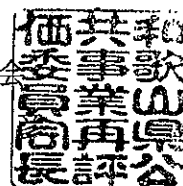 和歌山県公
共事業再評
価委員会長
会